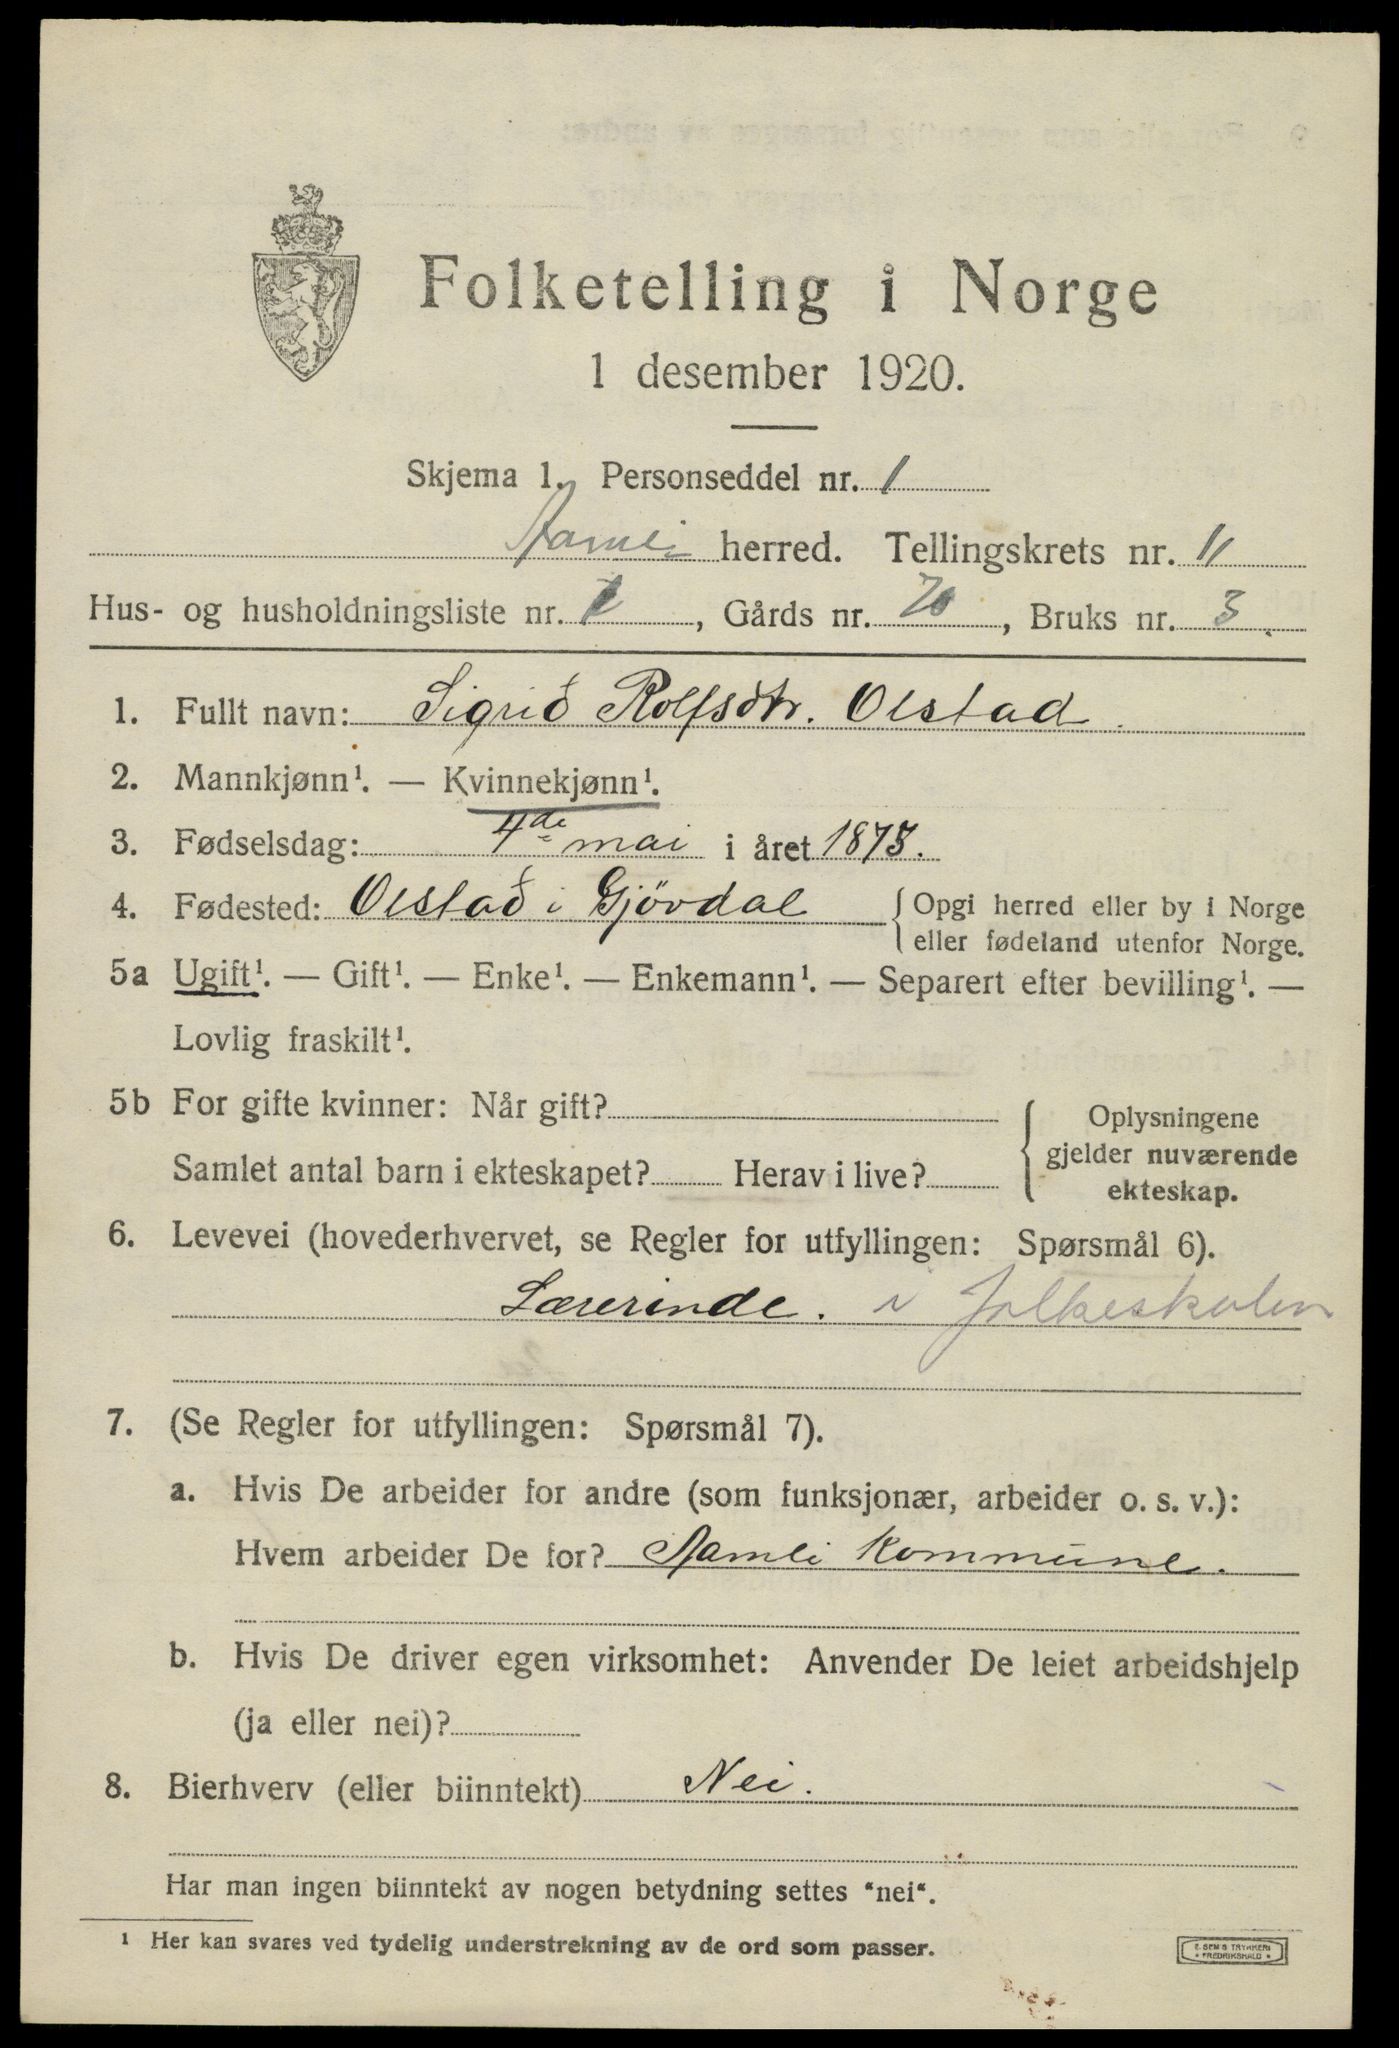 Folketelling i Norge
1 desember 1920.
Skjema 1. Personseddel nr. 1
Aamli herred. Tellingskrets nr. 11
Hus- og husholdningsliste nr. 1, Gårds nr. 20, Bruks nr. 3.
1. Fullt navn: Sigrid Rolfsdtr. Olstad.
2. Mannkjønn¹. — Kvinnekjønn¹.
3. Fødselsdag: 4de mai i året 1873.
4. Fødested: Olstad i Gjövdal { Opgi herred eller by i Norge
eller fødeland utenfor Norge.
5a Ugift¹. — Gift¹. — Enke¹. — Enkemann¹. — Separert efter bevilling¹. —
Lovlig fraskilt¹.
5b For gifte kvinner: Når gift?
Samlet antal barn i ekteskapet? Herav i live?
{ Oplysningene
gjelder nuværende
ekteskap.
6. Levevei (hovederhvervet, se Regler for utfyllingen: Spørsmål 6).
Lærerinde. i folkeskolen
7. (Se Regler for utfyllingen: Spørsmål 7).
a. Hvis De arbeider for andre (som funksjonær, arbeider o. s. v.):
Hvem arbeider De for? Aamli Kommune.
b. Hvis De driver egen virksomhet: Anvender De leiet arbeidshjelp
(ja eller nei)?
8. Bierhverv (eller biinntekt) Nei.
Har man ingen biinntekt av nogen betydning settes "nei".
¹ Her kan svares ved tydelig understrekning av de ord som passer.
E. SEM'S TRYKKERI
• FREDRIKSHALD •